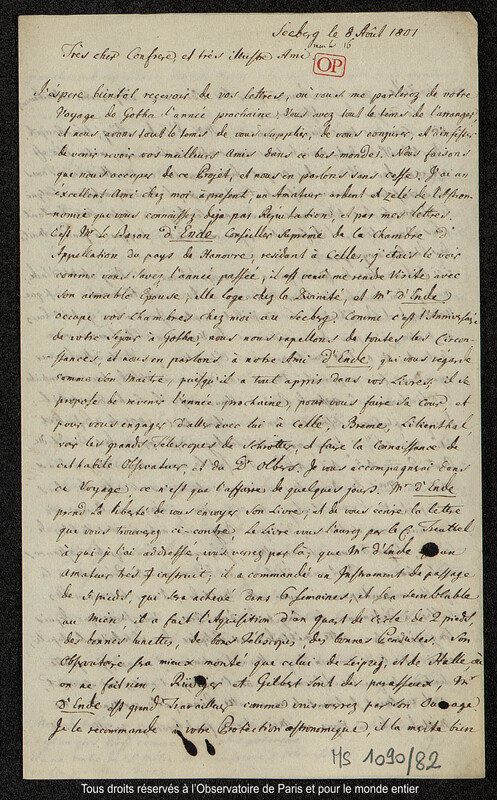 Seeberg le 8 Août 1801
Très cher Confrere, et très illustre Ami
OP
J'espere bientôt recevoir de vos lettres, où vous me parlerez de votre
Voyage de Gotha l'année prochaine. Vous avez tout le tems de l'arranger
et nous avons tout le tems de vous supplier, de vous conjurer, et d'insister
de venir revoir vos meilleurs Amis dans ce bas monde. Nous faisons
que nous occuper de ce Projet, et nous en parlons sans cesse. J'ai un
excellent Ami chez moi apresent, un Amateur ardent et zelé de l'Astro-
nomie que vous connaissez deja par Reputation, et par mes lettres.
C'est Mr. le Baron d'Ende Conseiller Suprême de la chambre d'
Appellation du pays de Hanovre, residant à Celle, j'étais le voir
comme vous savez l'année passée, il est venu me rendre Visite avec
son aimable Epouse, elle loge chez la Divinité, et Mr. d'Ende
occupe vos chambres chez moi au Seeberg. Comme c'est l'Anniversaire
de votre Sejour à Gotha, nous nous rappellons de toutes les Circon-
stances, et nous en parlons à notre Ami d'Ende qui vous regarde
comme son Maitre, puisqu'il a tout appris dans vos Livres, il se
propose de revenir l'année prochaine, pour vous faire sa cour, et
pour vous engager d'aller avec lui à Celle, Breme, Lilienthal,
voir les grands Telescopes de Schröter, et faire la connaissance de
cet habile Observateur, et du Dr. Olbers. Je vous accompagnerai dans
ce Voyage ce n'est que l'affaire de quelques jours. Mr. d'Ende
prend la liberté de vous envoyer son Livre, et de vous ecrire la lettre
que vous trouverez ci-contre. Le Livre vous l'aurez par le C. Treuttel
à qui je l'ai addressé, vous verrez par là, que Mr. d'Ende un
amateur très instruit, il a commandé un Instrument de passage
de 5 pieds, qui sera achevé dans 6 semaines, et sera semblable
au mien, il a fait l'Aquisition d'un quart de cercle de 2 pieds,
des bonnes lunettes, de bons Telescopes, des bonnes Pendules. Son
Observatoire sera mieux monté que celui de Leipzig, et de Halle où
on ne fait rien, Rüdiger et Gilbert sont des paresseux, Mr.
d'Ende est grand Travailleur comme vous verrez par son Ouvrage
Je le recommande à votre Protection astronomique, il la merite bien
MS 1090/82
Tous droits réservés à l'Observatoire de Paris et pour le monde entier